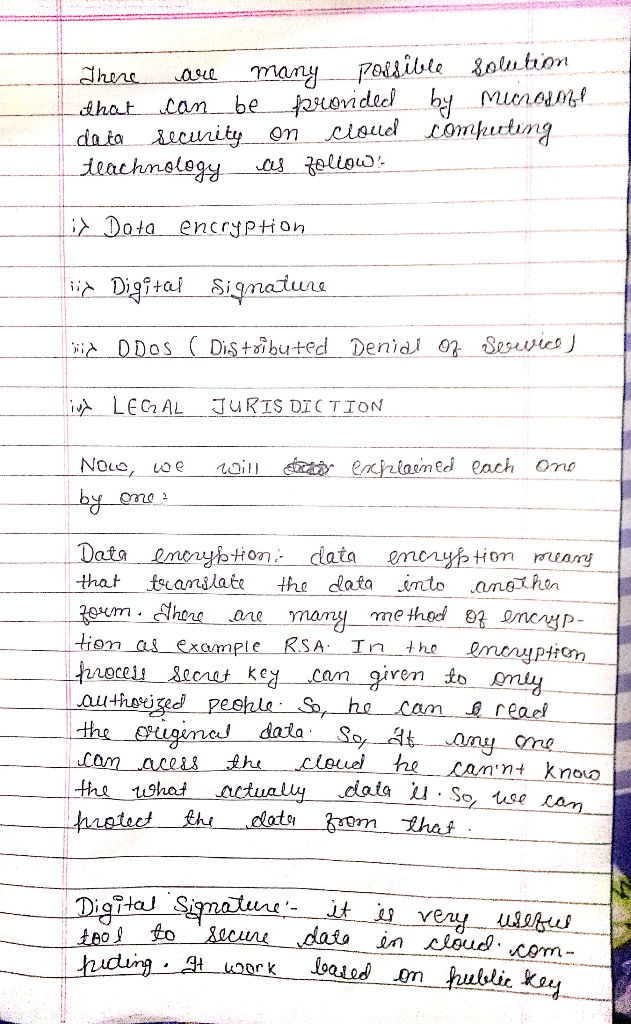 There are many possible solution
that can be provided by Microsoft
data security on cloud computing
teachnology as follow:-
i> Data encryption
ii> Digital Signature
iii> DDos ( Distributed Denial of Service)
iv> LEGAL JURISDICTION
Now, we will explained each one
by one:
Data encryption:- data encryption means
that translate the data into another
form. There are many method of encryp-
tion as example RSA. In the encryption
process secret key can given to only
authorized people. So, he can read
the original data. So, If any one
can acess the cloud he can'nt know
the what actually data is. So, we can
protect the data from that.
Digital Signature:- it is very useful
tool to secure data in cloud. com-
puting. It work based on public key